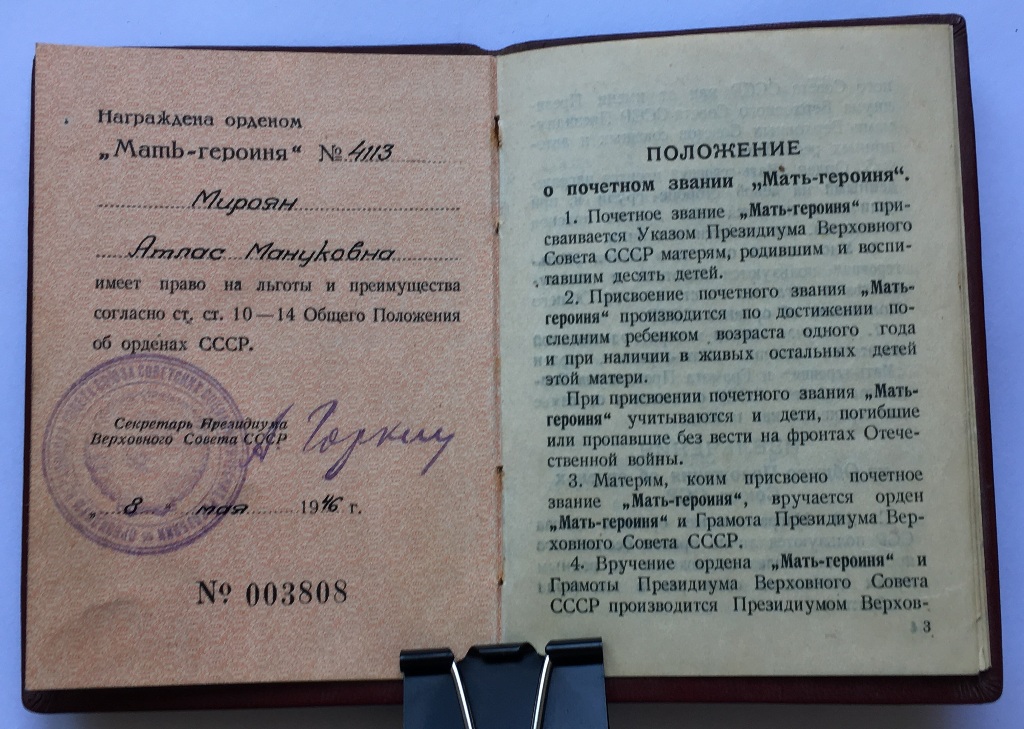 Награждена орденом
„Мать-героиня“ № 4113
Мироян
Атлас Мануковна
имеет право на льготы и преимущества
согласно ст. ст. 10—14 Общего Положения
об орденах СССР.
Секретарь Президиума
Верховного Совета СССР
А Горкин
„ 8 „ мая 1946 г.
№ 003808
ПОЛОЖЕНИЕ
о почетном звании „Мать-героиня“.
1. Почетное звание „Мать-героиня“ при-
сваивается Указом Президиума Верховного
Совета СССР матерям, родившим и воспи-
тавшим десять детей.
2. Присвоение почетного звания „Мать-
героиня“ производится по достижении по-
следним ребенком возраста одного года
и при наличии в живых остальных детей
этой матери.
При присвоении почетного звания „Мать-
героиня“ учитываются и дети, погибшие
или пропавшие без вести на фронтах Отече-
ственной войны.
3. Матерям, коим присвоено почетное
звание „Мать-героиня“, вручается орден
„Мать-героиня“ и Грамота Президиума Вер-
ховного Совета СССР.
4. Вручение ордена „Мать-героиня“ и
Грамоты Президиума Верховного Совета
СССР производится Президиумом Верхов-
3